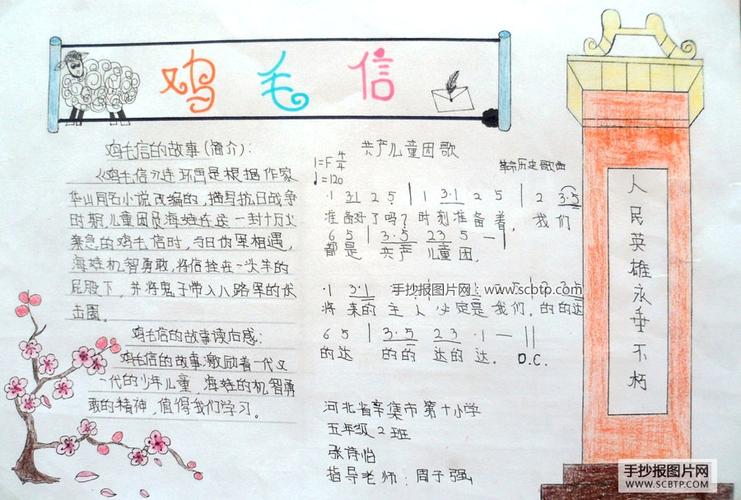 鸡毛信
鸡毛信的故事(简介):
《鸡毛信》连环画是根据作家
华山同名小说改编的,描写抗日战争
时期,儿童团员海娃在送一封十万火
紧急的鸡毛信时,与日伪军相遇,
海娃机智勇敢,将信拴在一头羊的
屁股下,并将鬼子带入八路军的伏
击圈。
鸡毛信的故事读后感:
鸡毛信的故事激励着一代又
一代的少年儿童,海娃的机智勇
敢的精神,值得我们学习。
共产儿童团歌
1=F 4/4
♩=120
革命历史歌曲
·1 3·1 2 5 | 1 3·1 2 5 | 2 3·5
准备好了吗?时刻准备着,我们
6 5 | 3·5 23 5 — |
都是 共产 儿童团。
·1 3·1
手抄报图片网:www.scbtp.com
将来的主人 必定是我们,的的达
6 5 | 3·5 23 ·1 — ||
的达 的的 达的达. D.C.
河北省辛集市第十小学
五年级2班
张诗怡
指导老师:周子强
人民英雄永垂不朽
手抄报图片网
WWW.SCBTP.COM